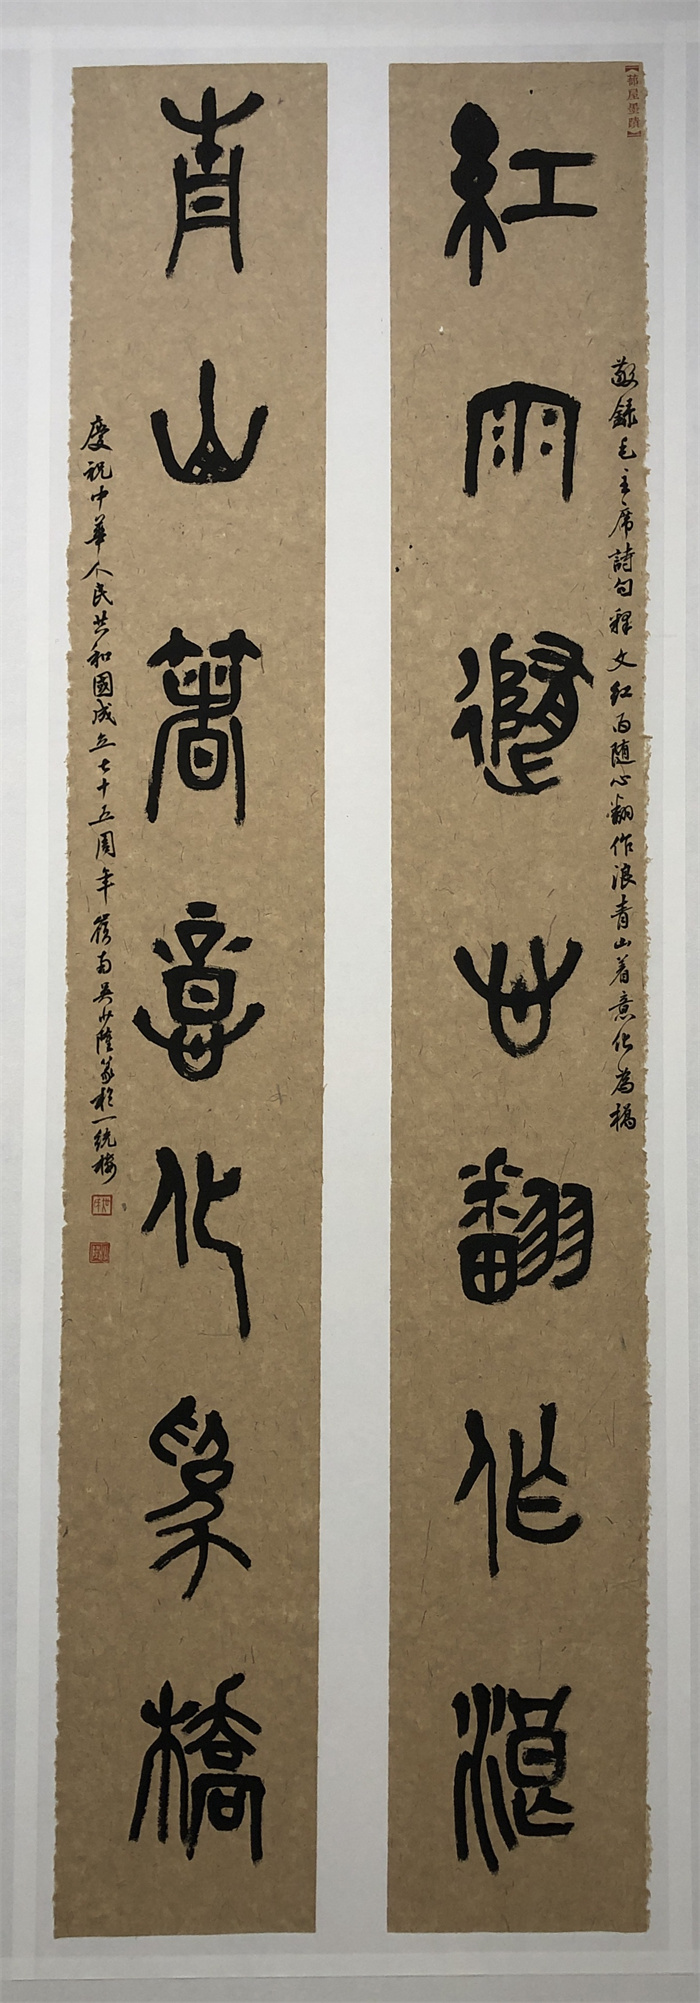 紅雨隨心翻作浪
敬錄毛主席詩句釋文红雨随心翻作浪青山着意化為橋
青山著意化為橋
慶祝中華人民共和國成立七十五周年嶺南吴少陸篆於一統樓